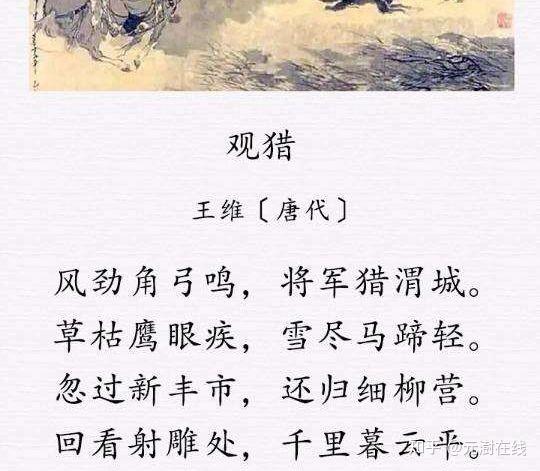 观猎
王维〔唐代〕
风劲角弓鸣，将军猎渭城。
草枯鹰眼疾，雪尽马蹄轻。
忽过新丰市，还归细柳营。
回看射雕处，千里暮云平。
知乎 @元澍在线